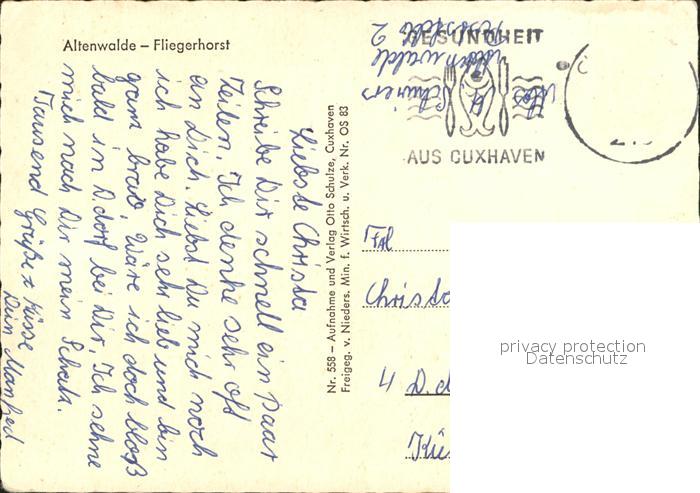 Altenwalde – Fliegerhorst
Liebste Christa
Schreibe Dir schnell ein paar
Zeilen. Ich denke sehr oft
an Dich. Liebst Du mich noch
ich habe Dich sehr lieb und bin
ganz brav. Wäre ich doch bloß
bald in D.dorf bei Dir. Ich sehne
mich nach Dir mein Schatz.
Tausend Grüße + Küsse
Dein Manfred
Nr. 558 – Aufnahme und Verlag Otto Schulze, Cuxhaven
Freigeg. v. Nieders. Min. f. Wirtsch. u. Verk. Nr. OS 83
GESUNDHEIT
AUS CUXHAVEN
Schwiers
2
Frl
Christa
4 D.d
Kü
privacy protection
Datenschutz